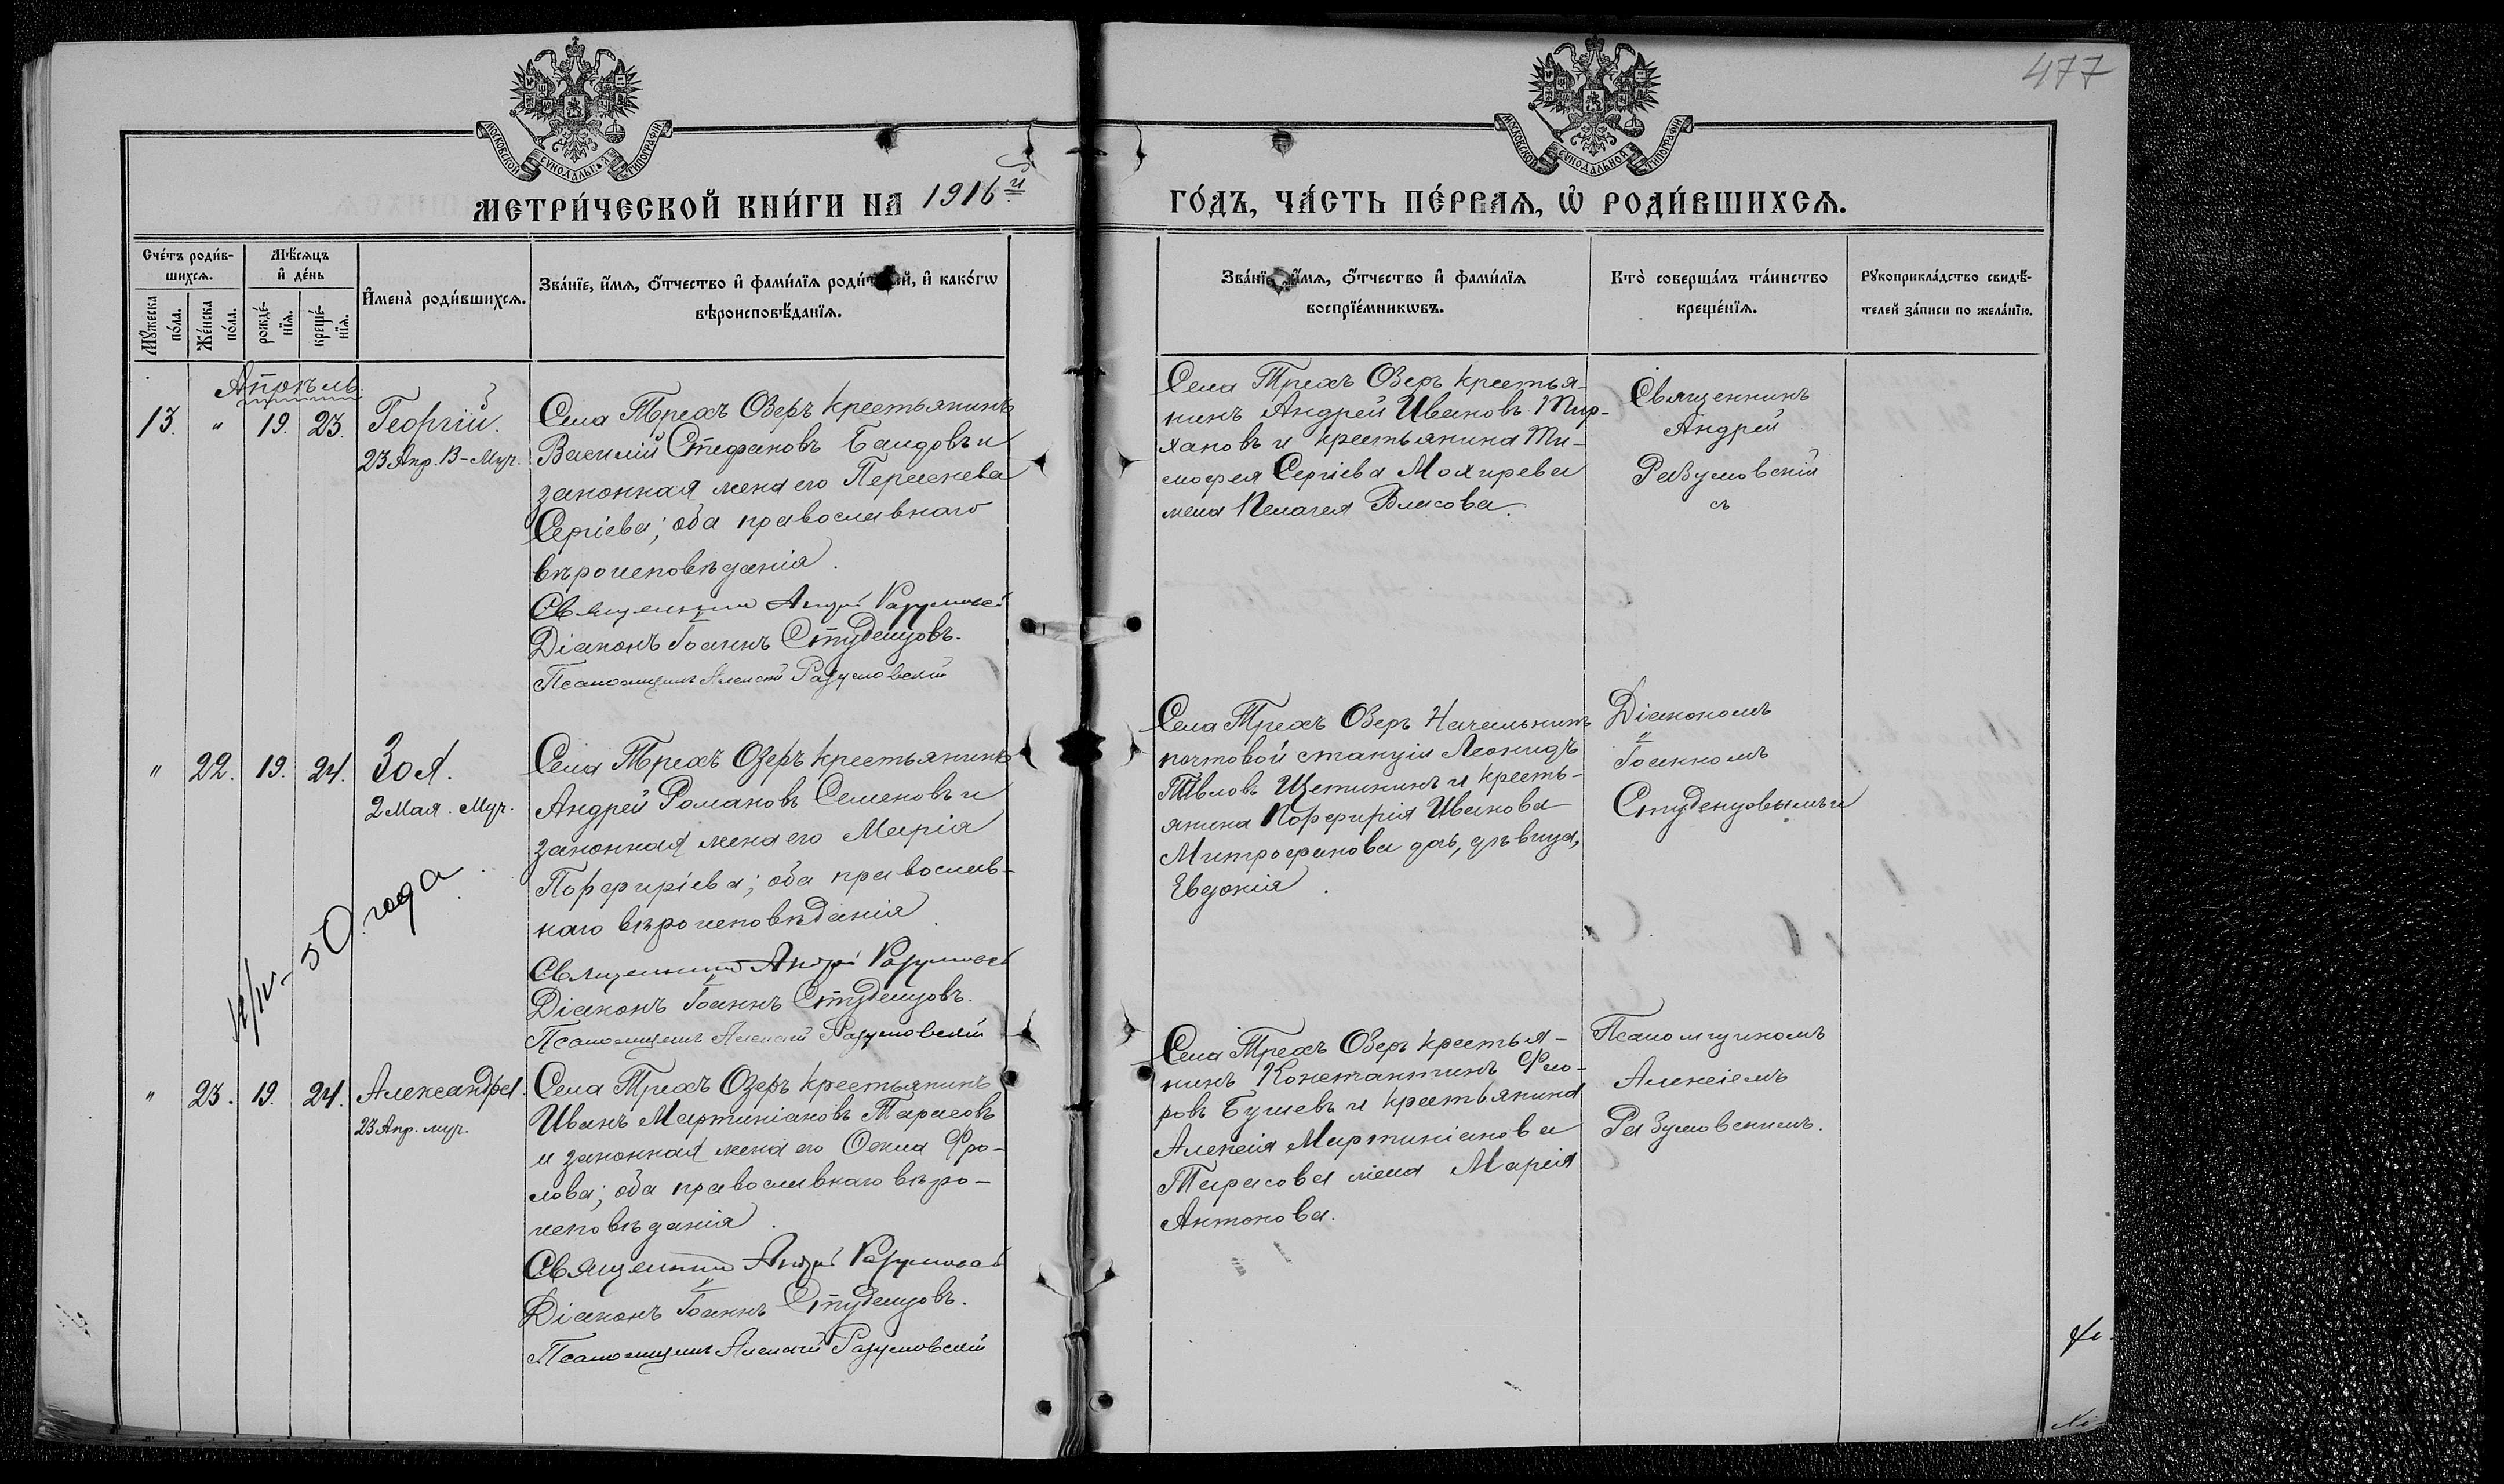 477
МОСКОВСКОЙ СѴНОДАЛЬНОЙ ТИПОГРАФІИ
МОСКОВСКОЙ СѴНОДАЛЬНОЙ ТИПОГРАФІИ
МЕТРИ́ЧЕСКОЙ КНИ́ГИ НА 1916й
ГО́ДЪ, ЧА́СТЬ ПЕ́РВАѦ, Ѡ҆ РОДИ́ВШИХСѦ.
Сче́тъ роди́в-
шихсѧ.
Мꙋ́жеска
по́ла.
Же́нска
по́ла.
Мѣ́сѧцъ
и҆ де́нь
рожде́-
нїѧ.
креще́-
нїѧ.
И҆мена̀ роди́вшихсѧ.
Зва́нїе, и҆́мѧ, ѻ҆́тчество и҆ фами́лїѧ роди́телей, и҆ како́гѡ
вѣроисповѣ́данїѧ.
Зва́нїе, и҆́мѧ, ѻ҆́тчество и҆ фами́лїѧ
воспрїе́мникѡвъ.
Кто̀ соверша́лъ та́инство
креще́нїѧ.
Рꙋкоприкла́дство свидѣ́-
телей за́писи по жела́нїю.
Апрѣль
13. " 19. 23. Георгій.
23 Апр. В-Муч.
Села Трехъ Озеръ крестьянинъ
Василій Стефановъ Баидовъ и
законная жена его
Сергіева; оба православнаго
вѣроисповѣданія.
Священникъ Андрей Разумовскій
Діаконъ Іоаннъ Студенцовъ.
Псаломщикъ Алексій Разумовскій
Села Трехъ Озеръ крестья-
нинъ Андрей Ивановъ Мир-
хановъ и крестьянина Ти-
мофея Сергіева Мохирева
жена Пелагея Власова.
Священникъ
Андрей
Разумовскій
съ
" 22. 19. 24. Зоя.
2 Мая. Муч.
Села Трехъ Озеръ крестьянинъ
Андрей Романовъ Семеновъ и
законная жена его Марія
Порфиріева; оба православ-
наго вѣроисповѣданія.
Священникъ Андрей Разумовскій
Діаконъ Іоаннъ Студенцовъ.
Псаломщикъ Алексій Разумовскій
Села Трехъ Озеръ Начальникъ
почтовой станціи Леонидъ
Щетининъ и кресть-
янина Порфирія Иванова
Митрофанова дочь, дѣвица,
Евдокія.
Діакономъ
Іоанномъ
Студенцовымъ и
50 года
" 23. 19. 24. Александра.
23 Апр. муч.
Села Трехъ Озеръ крестьянинъ
Иванъ Мартиніановъ Тарасовъ
и законная жена его Фро-
лова; оба православнаго вѣро-
исповѣданія.
Священникъ Андрей Разумовскій
Діаконъ Іоаннъ Студенцовъ.
Псаломщикъ Алексій Разумовскій
Села Трехъ Озеръ крестья-
нинъ Константинъ Фло-
ровъ и крестьянина
Алексія Мартиніанова
Тарасова жена Марія
Антонова.
Псаломщикомъ
Алексіемъ
Разумовскимъ.